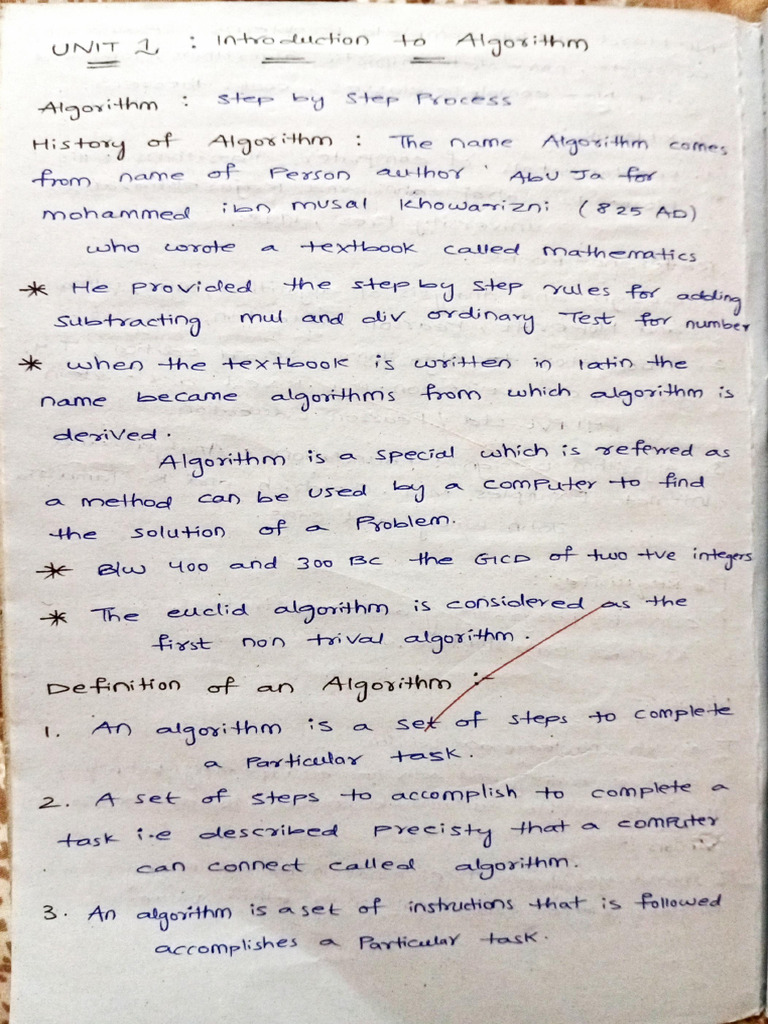 UNIT 1 : Introduction to Algorithm
Algorithm : Step by Step Process
History of Algorithm : The name Algorithm comes
from name of Person author ' Abu Ja for
mohammed ibn musal Khowarizni (825 AD)
who wrote a textbook called mathematics
* He provided the step by step rules for adding
subtracting mul and div ordinary Test for number
* when the textbook is written in latin the
name became algorithms from which algorithm is
derived.
Algorithm is a special which is referred as
a method can be used by a computer to find
the solution of a Problem.
* B/w 400 and 300 BC the GCD of two +ve integers
* The euclid algorithm is considered as the
first non trival algorithm.
Definition of an Algorithm :-
1. An algorithm is a set of steps to complete
a Particular task.
2. A set of steps to accomplish to complete a
task i.e described precisty that a computer
can connect called algorithm.
3. An algorithm is a set of instructions that is followed
accomplishes a Particular task.